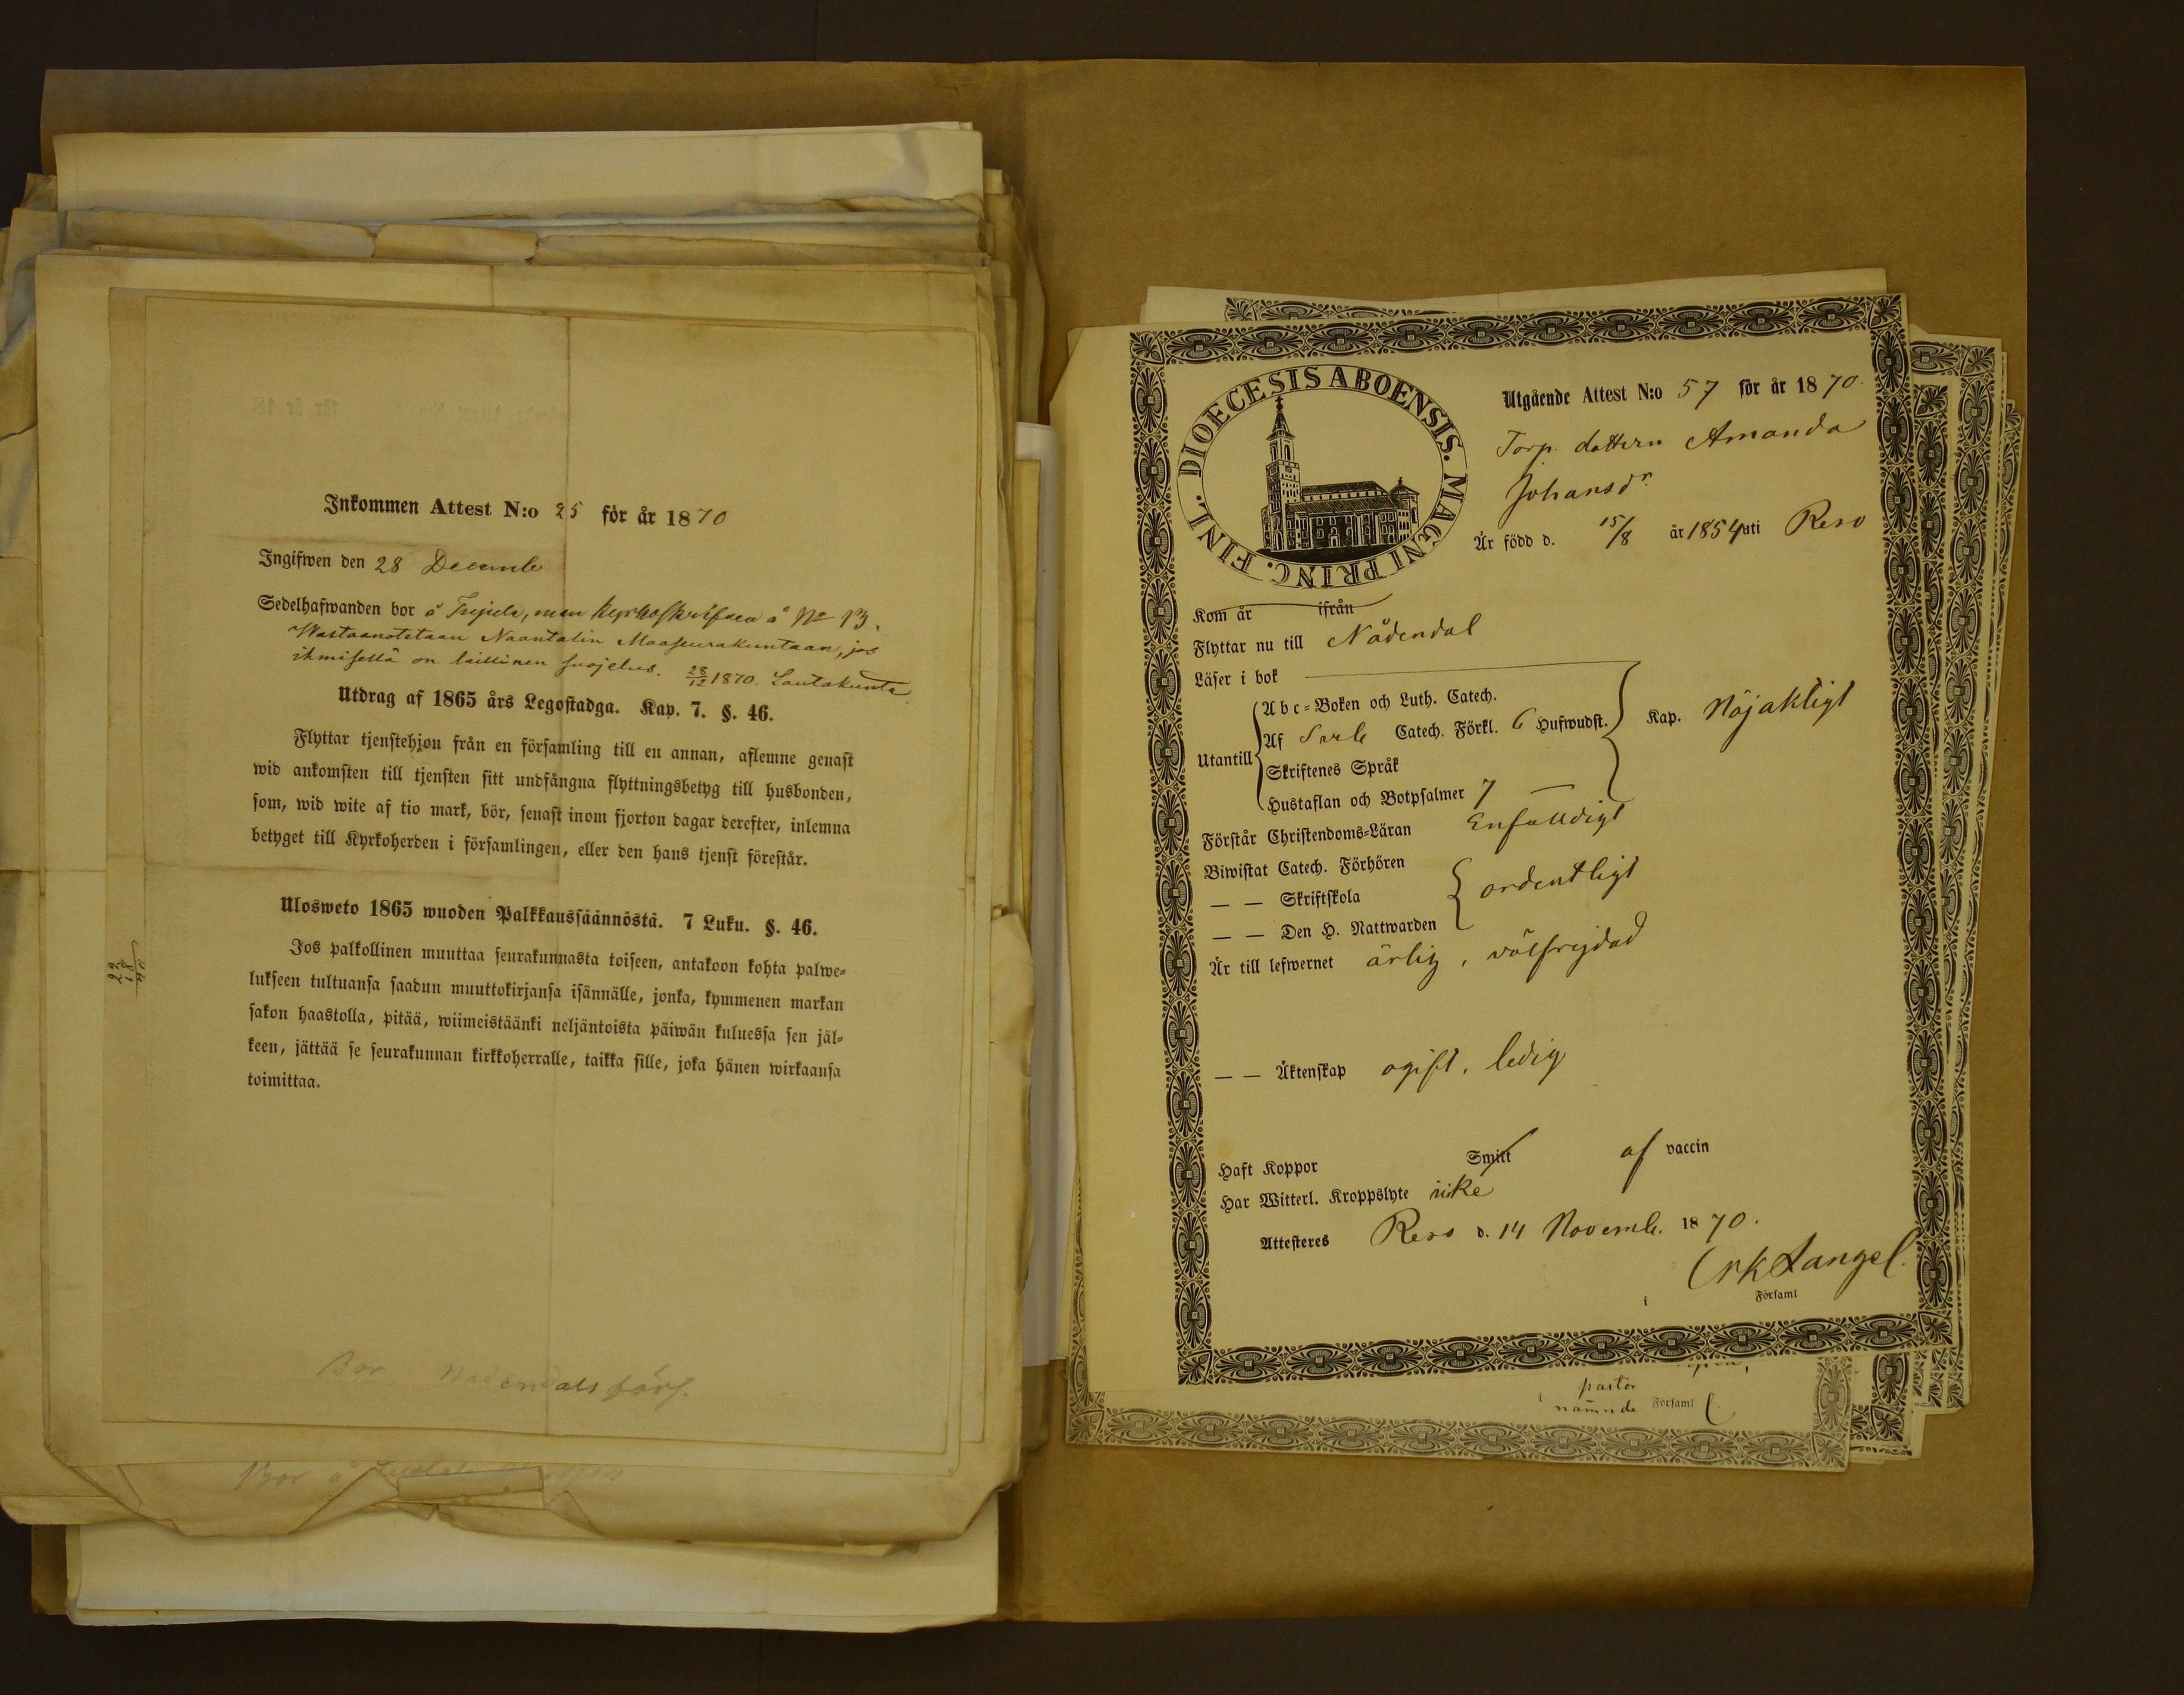 Inkommen Attest N:o 25 för år 1870
Ingifwen den 28 Decemb
Sedelhafwanden bor å men kyrkoskrifven å No 13.
Wastaanotetaan Naantalin Maaseurakuntaan, jos
ihmisellä on laillinen suojelus. 28/12 1870. Lautakunta
Utdrag af 1865 års Legostadga. Kap. 7. §. 46.
Flyttar tjenstehjon från en församling till en annan, aflemne genast
wid ankomsten till tjensten sitt undfångna flyttningsbetyg till husbonden,
som, wid wite af tio mark, bör, senast inom fjorton dagar derefter, inlemna
betyget till Kyrkoherden i församlingen, eller den hans tjenst förestår.
Ulosweto 1865 wuoden Palkkaussäännöstä. 7 Luku. §. 46.
Jos palkollinen muuttaa seurakunnasta toiseen, antakoon kohta palwe-
lukseen tultuansa saadun muuttokirjansa isännälle, jonka, kymmenen markan
sakon haastolla, pitää, wiimeistäänki neljäntoista päiwän kuluessa sen jäl-
keen, jättää se seurakunnan kirkkoherralle, taikka sille, joka hänen wirkaansa
toimittaa.
Bor Nådendals förs.
Bor å
DIOECESIS ABOENSIS. MAGNI PRINC. FINL.
Utgående Attest N:o 57 för år 1870.
Torp. dottern Amanda
Johansdr.
Är född d. 15/8 år 1854 uti Reso
Kom år ifrån
Flyttar nu till Nådendal
Läser i bok
Utantill
Abc-Boken och Luth. Catech.
Af Catech. Förkl. 6 Hufwudst.
Skriftenes Språk
Hustaflan och Botpsalmer 7
Kap. Nöjaktigt
Förstår Christendoms-Läran Enfalldigt
Biwistat Catech. Förhören
— — Skriftskola
— — Den H. Nattwarden
ordentligt
Är till lefwernet ärlig, välfrejdad
— — Äktenskap ogift, ledig
Haft Koppor Smitt af vaccin
Har Witterl. Kroppslyte icke
Attesteres Reso d. 14 Novemb. 1870.
Langel.
i Församl
pastor
nämnde Församl